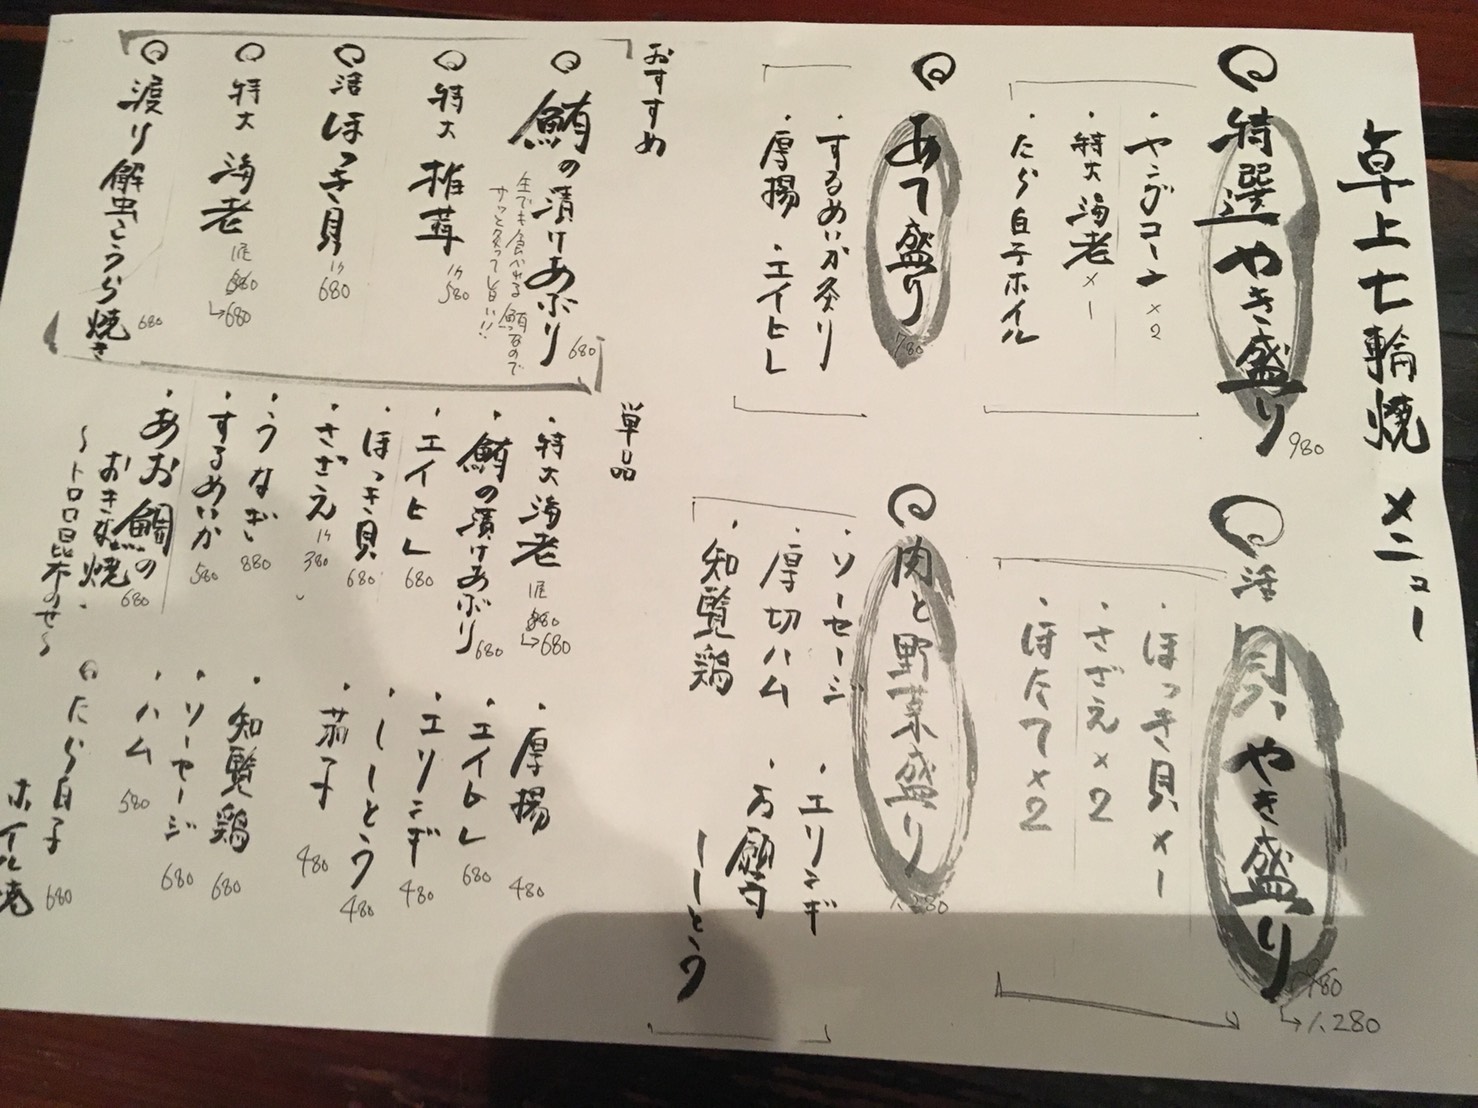 卓上七輪焼 メニュー
特選 やき盛り 980
・ヤングコーン ×2
・特大 海老 ×1
・たら白子ホイル
活 貝 やき盛り 980
↳1,280
・ほっき貝 ×1
・さざえ ×2
・ほたて ×2
あて盛り 780
・するめいか炙り
・厚揚 ・エイヒレ
肉と野菜盛り 1,280
・ソーセージ ・エリンギ
・厚切ハム ・万願寺
・知覧鶏 ししとう
おすすめ
鮪の漬けあぶり 680
生でも食べれる鮪なので
サッと炙って旨い!!
特大 椎茸 1ケ 580
活 ほっき貝 1ケ 680
特大 海老 1尾 880
↳680
渡り蟹こうら焼き 680
単品
・特大 海老 1尾 880
↳680
・鮪の漬けあぶり 680
・エイヒレ 680
・ほっき貝 680
・さざえ 1ケ 380
・うなぎ 880
・するめいか 580
・あお鯛の
おきな焼 680
〜トロロ昆布のせ〜
・厚揚 480
・エイヒレ 680
・エリンギ 480
・ししとう 480
・茄子 480
・知覧鶏 680
・ソーセージ 680
・ハム 580
たら白子 680
ホイル焼